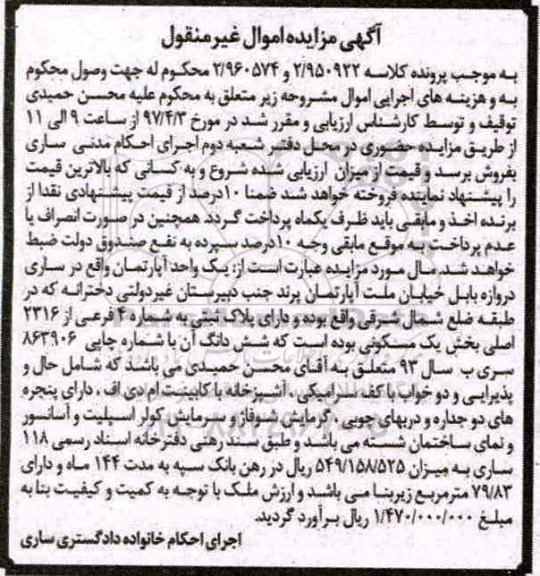 آگهی مزایده اموال غیر منقول
به موجب پرونده کلاسه ۲/۹۵۰۹۲۲ و ۲/۹۶۰۵۷۴ محکوم له جهت وصول محکوم
به و هزینه های اجرایی اموال مشروحه زیر متعلق به محکوم علیه محسن حمیدی
توقیف و توسط کارشناس ارزیابی و مقرر شد در مورخ ۹۷/۴/۳ از ساعت ۹ الی ۱۱
از طریق مزایده حضوری در محل دفتر شعبه دوم اجرای احکام مدنی ساری
بفروش برسد و قیمت از میزان ارزیابی شده شروع و به کسانی که بالاترین قیمت
را پیشنهاد نماینده فروخته خواهد شد ضمنا ۱۰درصد از قیمت پیشنهادی نقدا از
برنده اخذ و مابقی باید ظرف یکماه پرداخت گردد همچنین در صورت انصراف یا
عدم پرداخت به موقع مابقی وجه ۱۰درصد سپرده به نفع صندوق دولت ضبط
خواهد شد. مال مورد مزایده عبارت است از: یک واحد آپارتمان واقع در ساری
دروازه بابل خیابان ملت آپارتمان پرند جنب دبیرستان غیردولتی دخترانه که در
طبقه ضلع شمال شرقی واقع بوده و دارای پلاک ثبتی به شماره ۴ فرعی از ۲۳۱۶
اصلی بخش یک مسکونی بوده است که شش دانگ آن با شماره چاپی ۸۶۳۹۰۶
سری ب سال ۹۳ متعلق به آقای محسن حمیدی می باشد که شامل حال و
پذیرایی و دو خواب با کف سرامیکی ، آشپزخانه با کابینت ام دی اف ، دارای پنجره
های دو جداره و دربهای چوبی ، گرمایش شوفاژ و سرمایش کولر اسپلیت و آسانسور
و نمای ساختمان شسته می باشد و طبق سند رهنی دفترخانه اسناد رسمی ۱۱۸
ساری به میزان ۵۴۹/۱۵۸/۵۲۵ ریال در رهن بانک سپه به مدت ۱۴۴ ماه و دارای
۷۹/۸۳ مترمربع زیربنا می باشد و ارزش ملک با توجه به کمیت و کیفیت بنا به
مبلغ ۱/۴۷۰/۰۰۰/۰۰۰ ریال برآورد گردید.
اجرای احکام خانواده دادگستری ساری